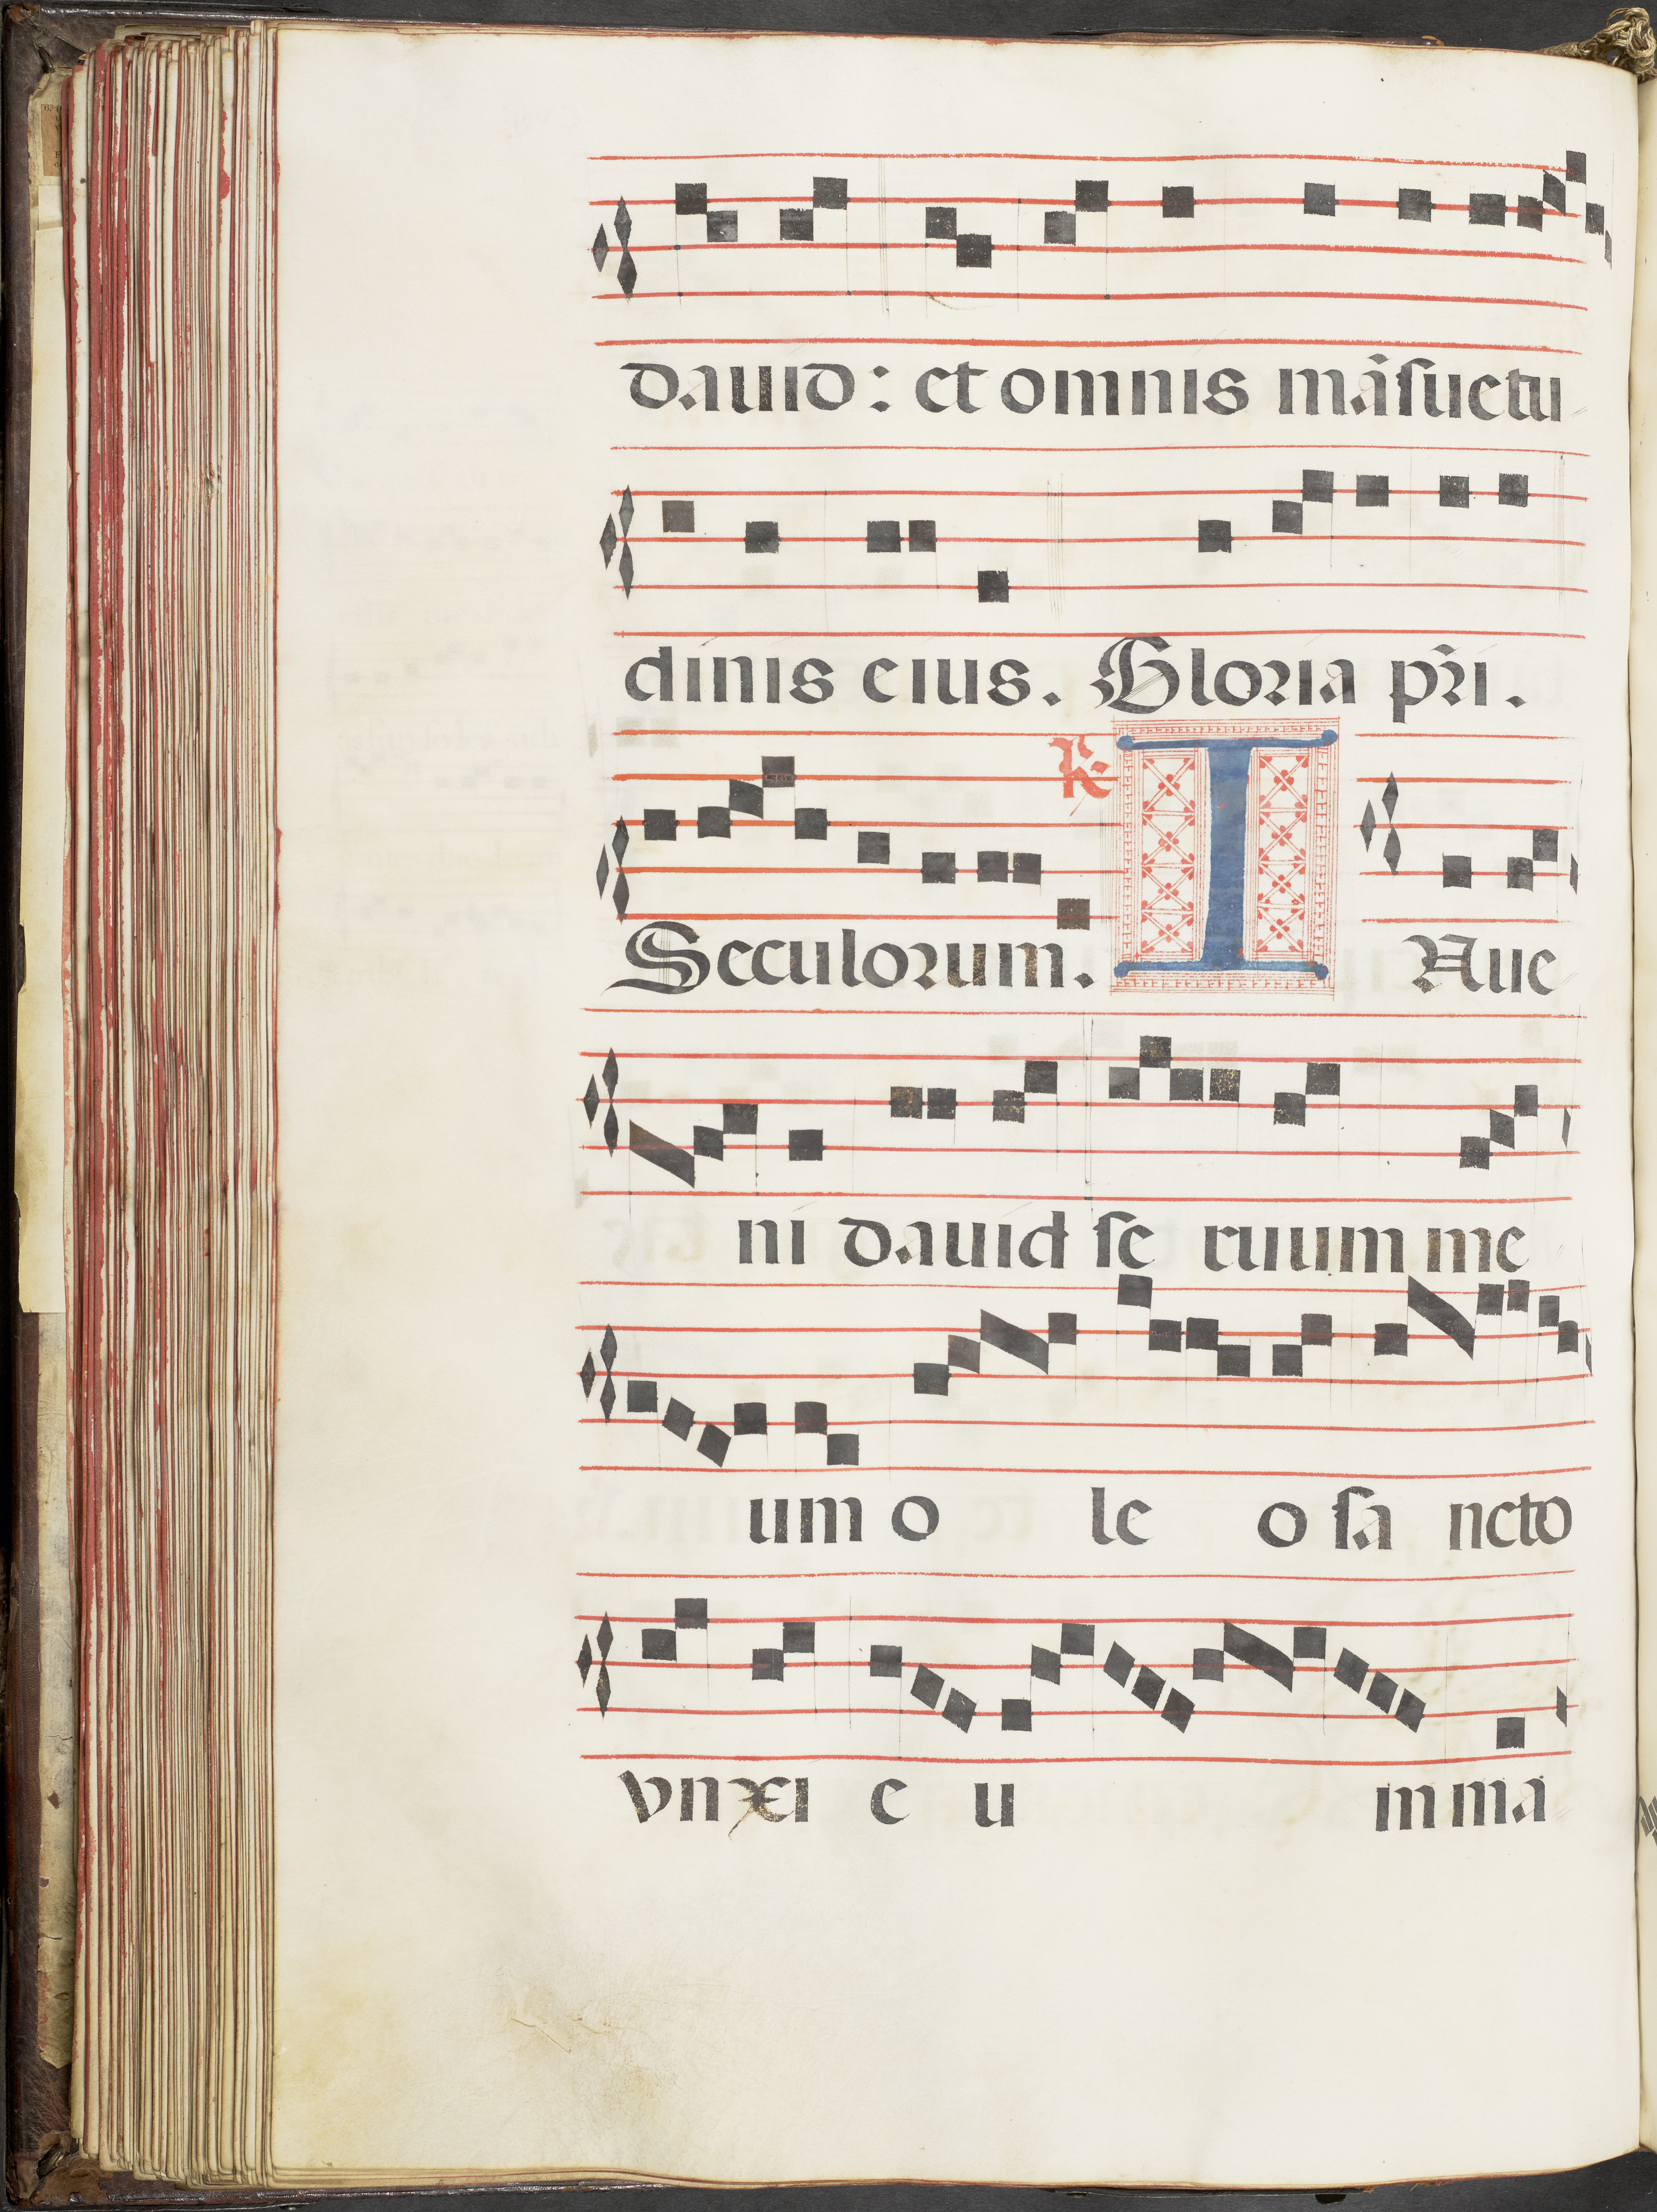 dauid: et omnis mãsuetu
dinis eius. Gloria pr̃i.
Seculorum. R I Nue
ni dauid se ruum me
um o le o sa ncto
vnxi e u m ma